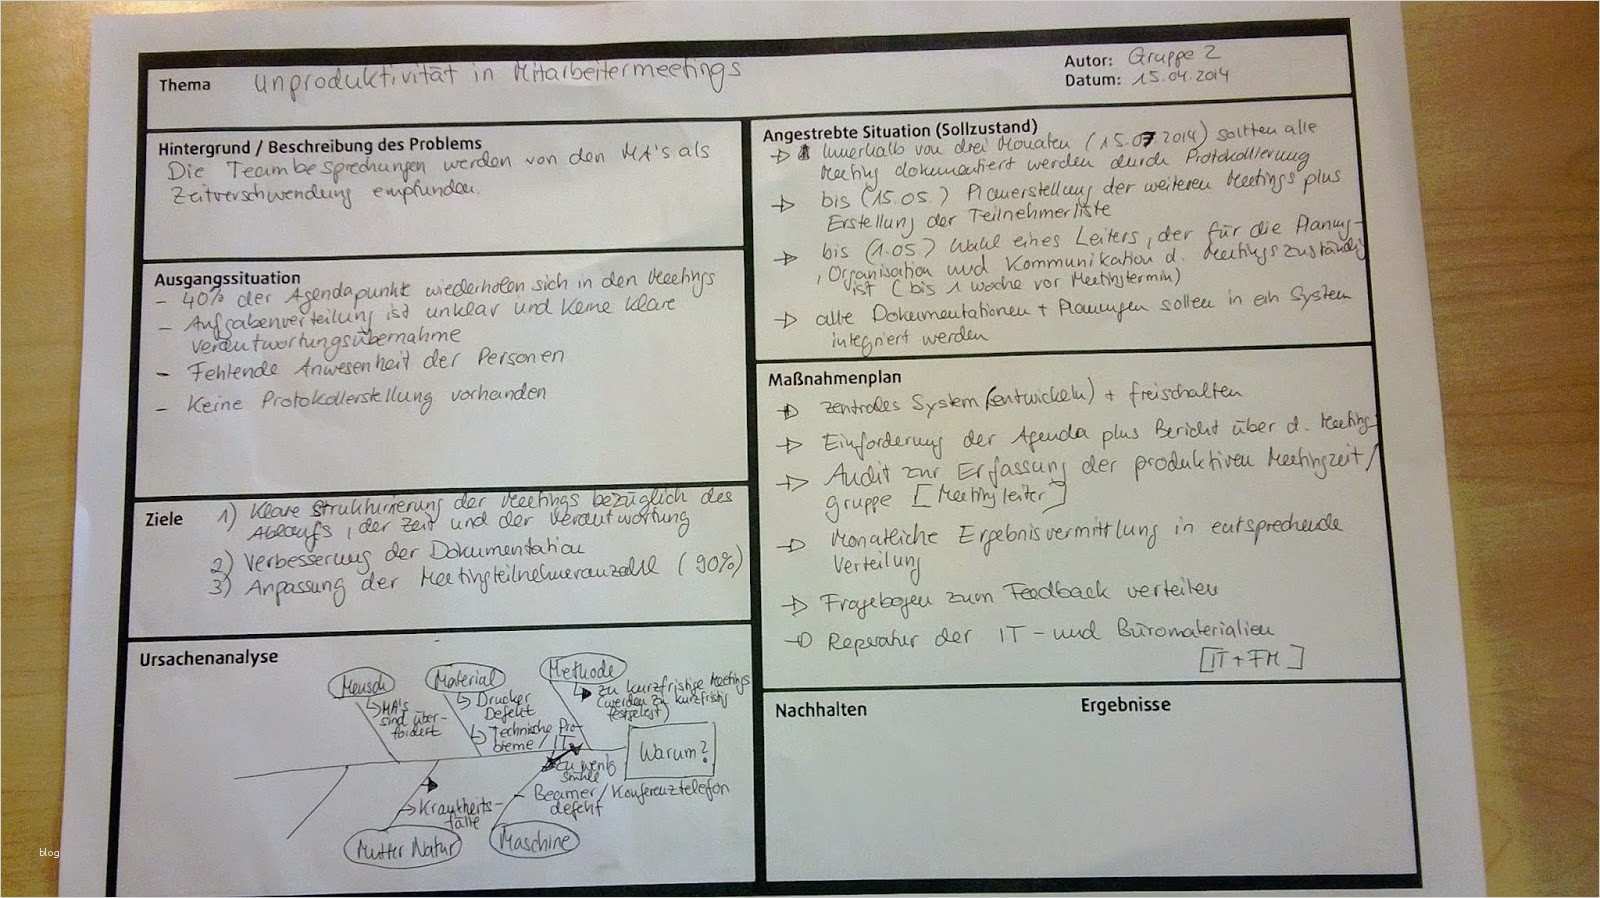 Thema unproduktivität in Mitarbeitermeetings
Autor: Gruppe 2
Datum: 15.04.2014
Hintergrund / Beschreibung des Problems
Die Teambesprechungen werden von den MA's als
Zeitverschwendung empfunden.
Ausgangssituation
- 40% der Agendapunkte wiederholen sich in den Meetings
- Aufgabenverteilung ist unklar und keine klare
verantwortungsübernahme
- Fehlende Anwesenheit der Personen
- Keine Protokollerstellung vorhanden
Ziele 1) Klare Strukturierung der Meetings bezüglich des
Ablaufs, der Zeit und der Verantwortung
2) Verbesserung der Dokumentation
3) Anpassung der Meetingteilnehmeranzahl (90%)
Ursachenanalyse
Mensch
MA's
sind über-
fordert
Material
Drucker
Defekt
Technische Pro-
bleme / IT
Methode
zu kurzfristige Meetings
(werden zu kurzfristig
festgelegt)
Warum?
zu wenig
Stühle
- Beamer/Konferenztelefon
defekt
Krankheits-
fälle
Mutter Natur
Maschine
Angestrebte Situation (Sollzustand)
Innerhalb von drei Monaten (15.07.2014) sollten alle
Meeting dokumentiert werden durch Protokollierung
bis (15.05.) Planerstellung der weiteren Meetings plus
Erstellung der Teilnehmerliste
bis (1.05) Wahl eines Leiters, der für die Planung
, Organisation und Kommunikation d. Meetings zuständig
ist (bis 1 Woche vor Meetingtermin)
alle Dokumentationen + Planungen sollen in ein System
integriert werden
Maßnahmenplan
zentrales System (entwickeln) + freischalten
Einforderung der Agenda plus Bericht über d. Meeting
Audit zur Erfassung der produktiven Meetingzeit/
gruppe [Meetingleiter]
Monatliche Ergebnisvermittlung in entsprechende
Verteilung
Fragebogen zum Feedback verteilen
Reperatur der IT - und Büromaterialien
[IT + FM]
Nachhalten
Ergebnisse
blog